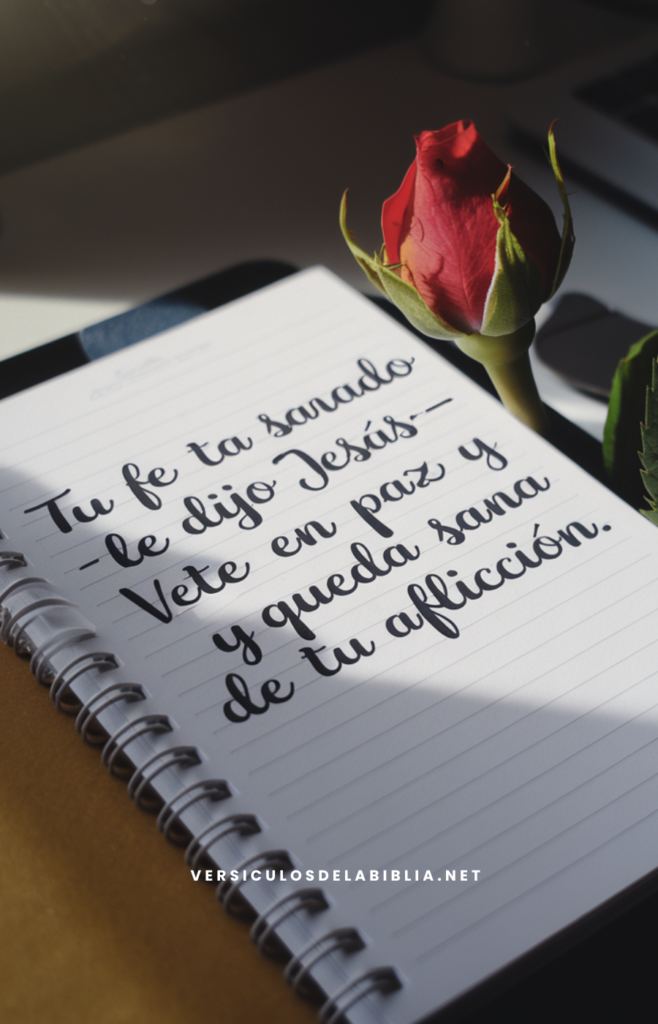 Tu fe ta sanado
-le dijo Jesús-—
Vete en paz y
y queda sana
de tu aflicción.
VERSICULOSDELABIBLIA.NET